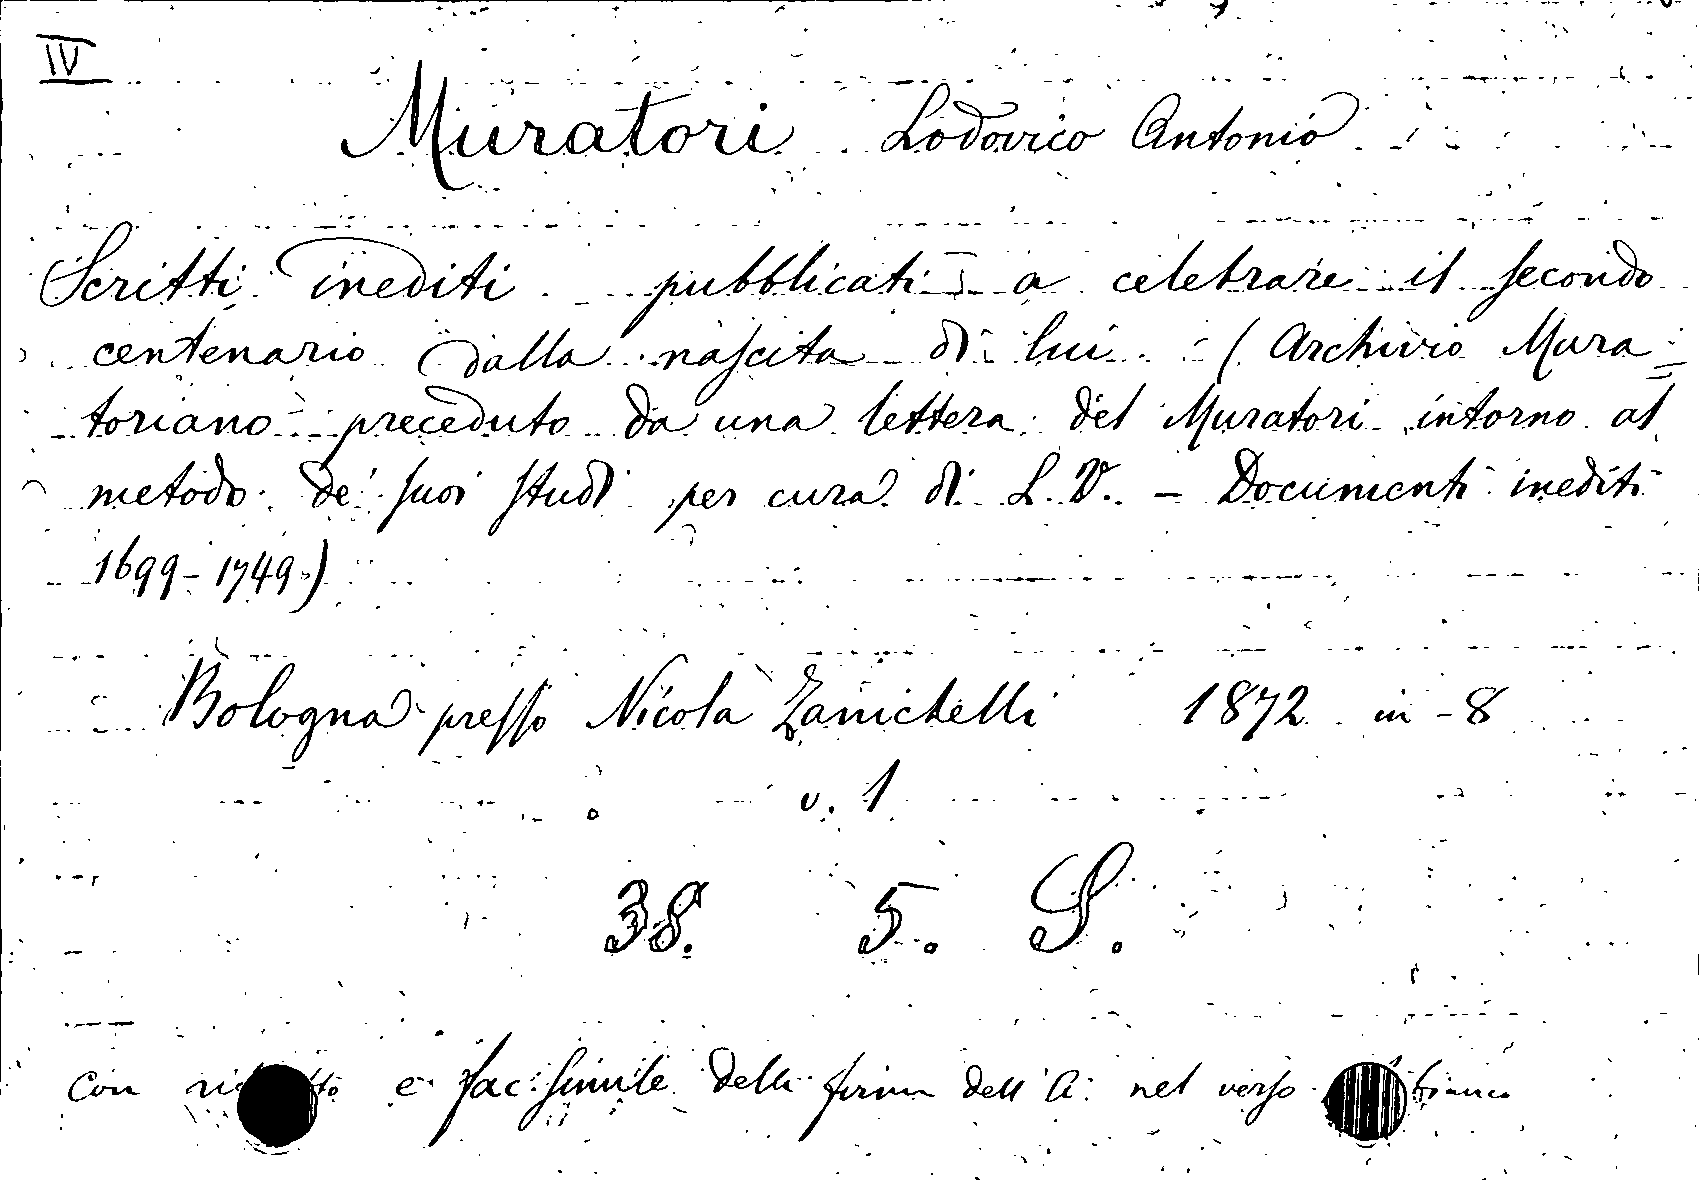 IV
Muratori Lodovico Antonio
Scritti inediti pubblicati a celebrare il secondo
centenario dalla nascita di lui (Archivio Mura=
toriano preceduto da una lettera del Muratori intorno al
metodo de' suoi studi per cura di L. V. - Documenti inediti
1699-1749.)
Bologna presso Nicola Zanichelli 1872 in-8
v. 1
38. 5. S.
Con e facsimile della firma dell'A. nel verso bianco